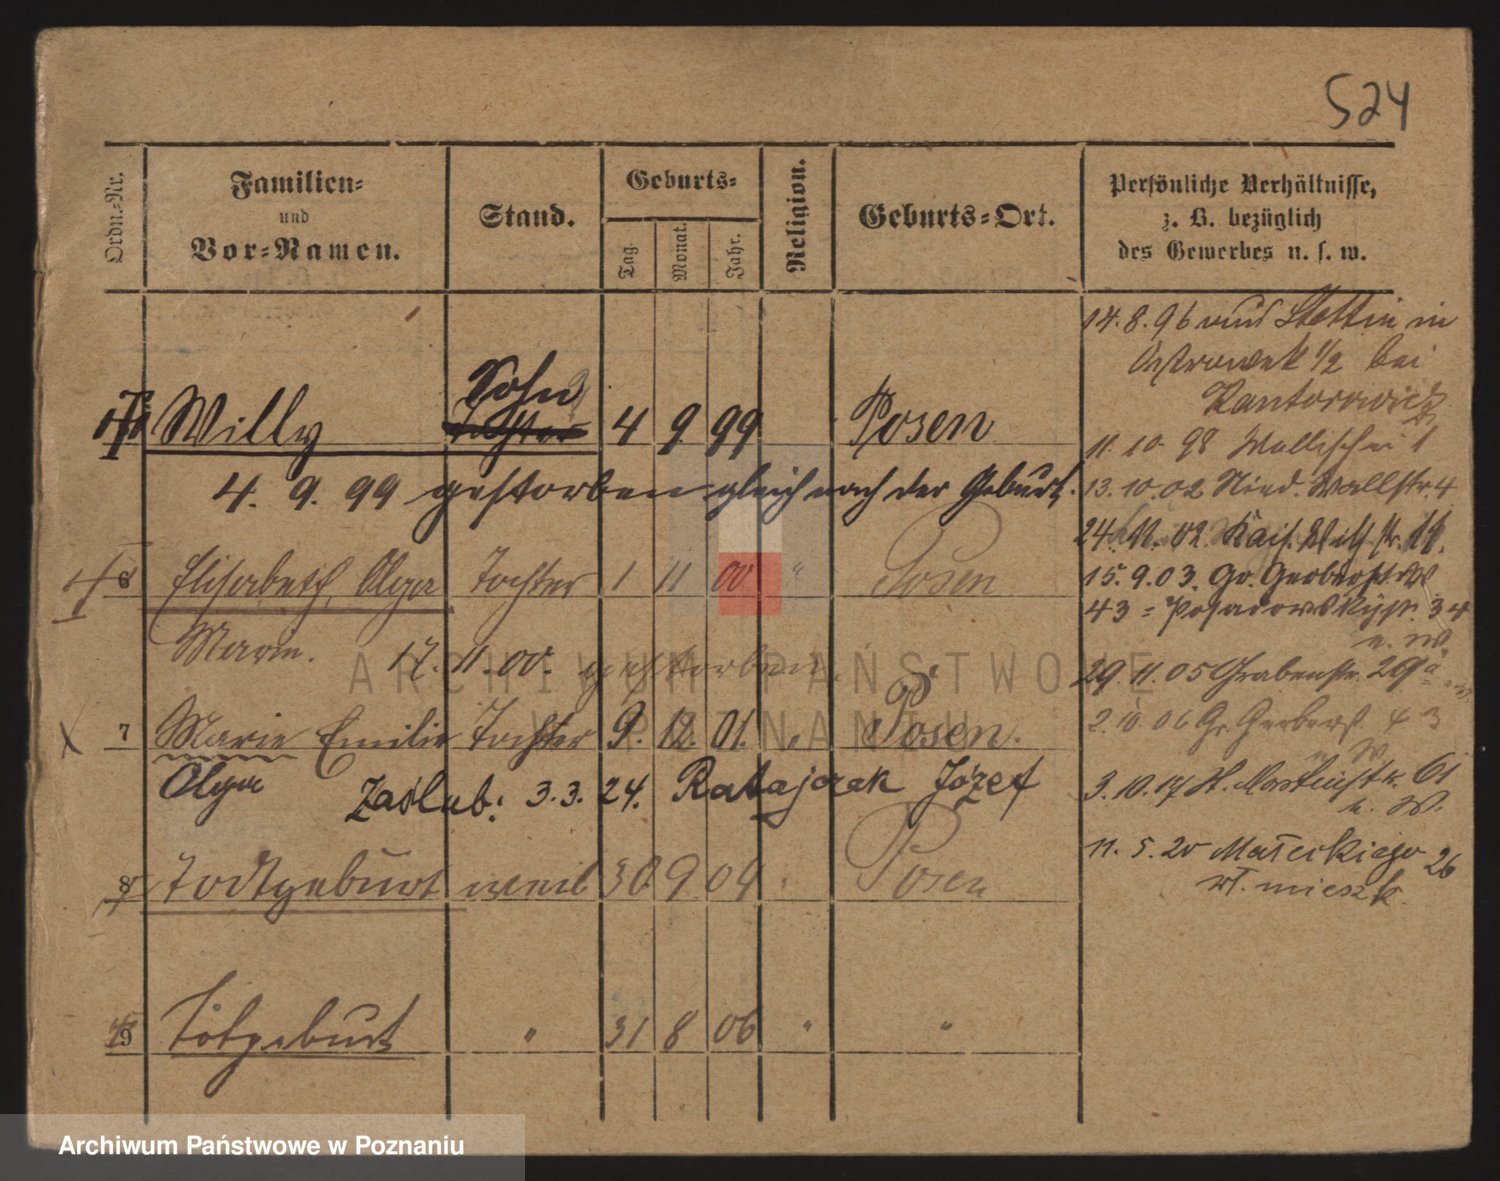 524
Ordn.-Nr.
Familien-
und
Vor-Namen.
Stand.
Geburts-
Tag.
Monat.
Jahr.
Religion.
Geburts-Ort.
Persönliche Verhältnisse,
z. B. bezüglich
des Gewerbes u. s. w.
Willy Sohn 4 9 99 Posen
4. 9. 99 gestorben gleich nach der Geburt.
6 Elisabeth, Olga Tochter 1 11 00 " Posen
Marie. 17. 11. 00. gestorben.
7 Marie Emilie Tochter 9. 12. 01. " Posen.
Olga
Zaślub: 3.3.24. Ratajczak Józef
8 Todtgeburt weibl 30 9 04 " Posen
9 Totgeburt " 31 8 06 " "
14. 8. 96 aus Stettin in
Ostrowek 1/2 bei
Kantorowicz
11. 10 98 Wallischei 1
13. 10. 02 Nied. Wallstr. 4
24. 11. 02. Kais. Wilh. str. 11.
15. 9. 03. Gr. Gerberstr.
43 = Posadowskystr. 34
u. W.
29. 11. 05 Grabenstr. 29a
2. 10. 06 Gr. Gerberst. 43
u. W.
3. 10. 17 St. Martinstr. 61
u. W.
11. 5. 20 Małeckiego 26
wł. mieszk.
ARCHIWUM PAŃSTWOWE
W POZNANIU
Archiwum Państwowe w Poznaniu